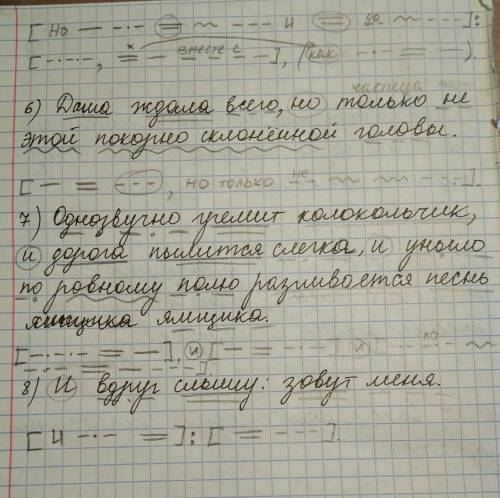 [ Но — –·– = ~~ – – – – и = по ~~ – – – –]:
[–·–·–, = — вместе с – – – –], (как –·– = —).
частица
6) Даша ждала всего, но только не
этой покорно склонённой головы.
[ — = – – –, но только не – – ~~ ~~ ~~ – –].
7) Однозвучно гремит колокольчик,
и дорога пылится слегка, и уныло
по ровному полю разливается песнь
ямщика.
[–·–·– = —], и [— = – – –] и [–·–·– по ~~
– – – = — – – –].
8) И вдруг слышу: зовут меня.
[ И –·– =]: [ = – – –].